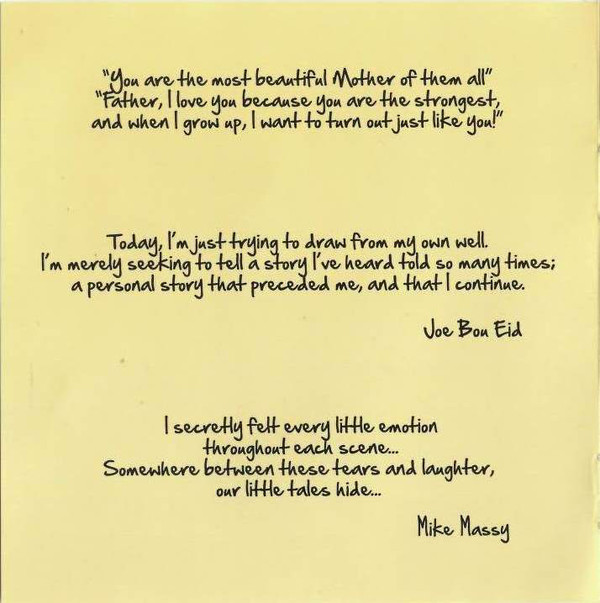 "You are the most beautiful Mother of them all"
"Father, I love you because you are the strongest,
and when I grow up, I want to turn out just like you!"
Today, I'm just trying to draw from my own well.
I'm merely seeking to tell a story I've heard told so many times;
a personal story that preceded me, and that I continue.
Joe Bou Eid
I secretly felt every little emotion
throughout each scene...
Somewhere between these tears and laughter,
our little tales hide...
Mike Massy